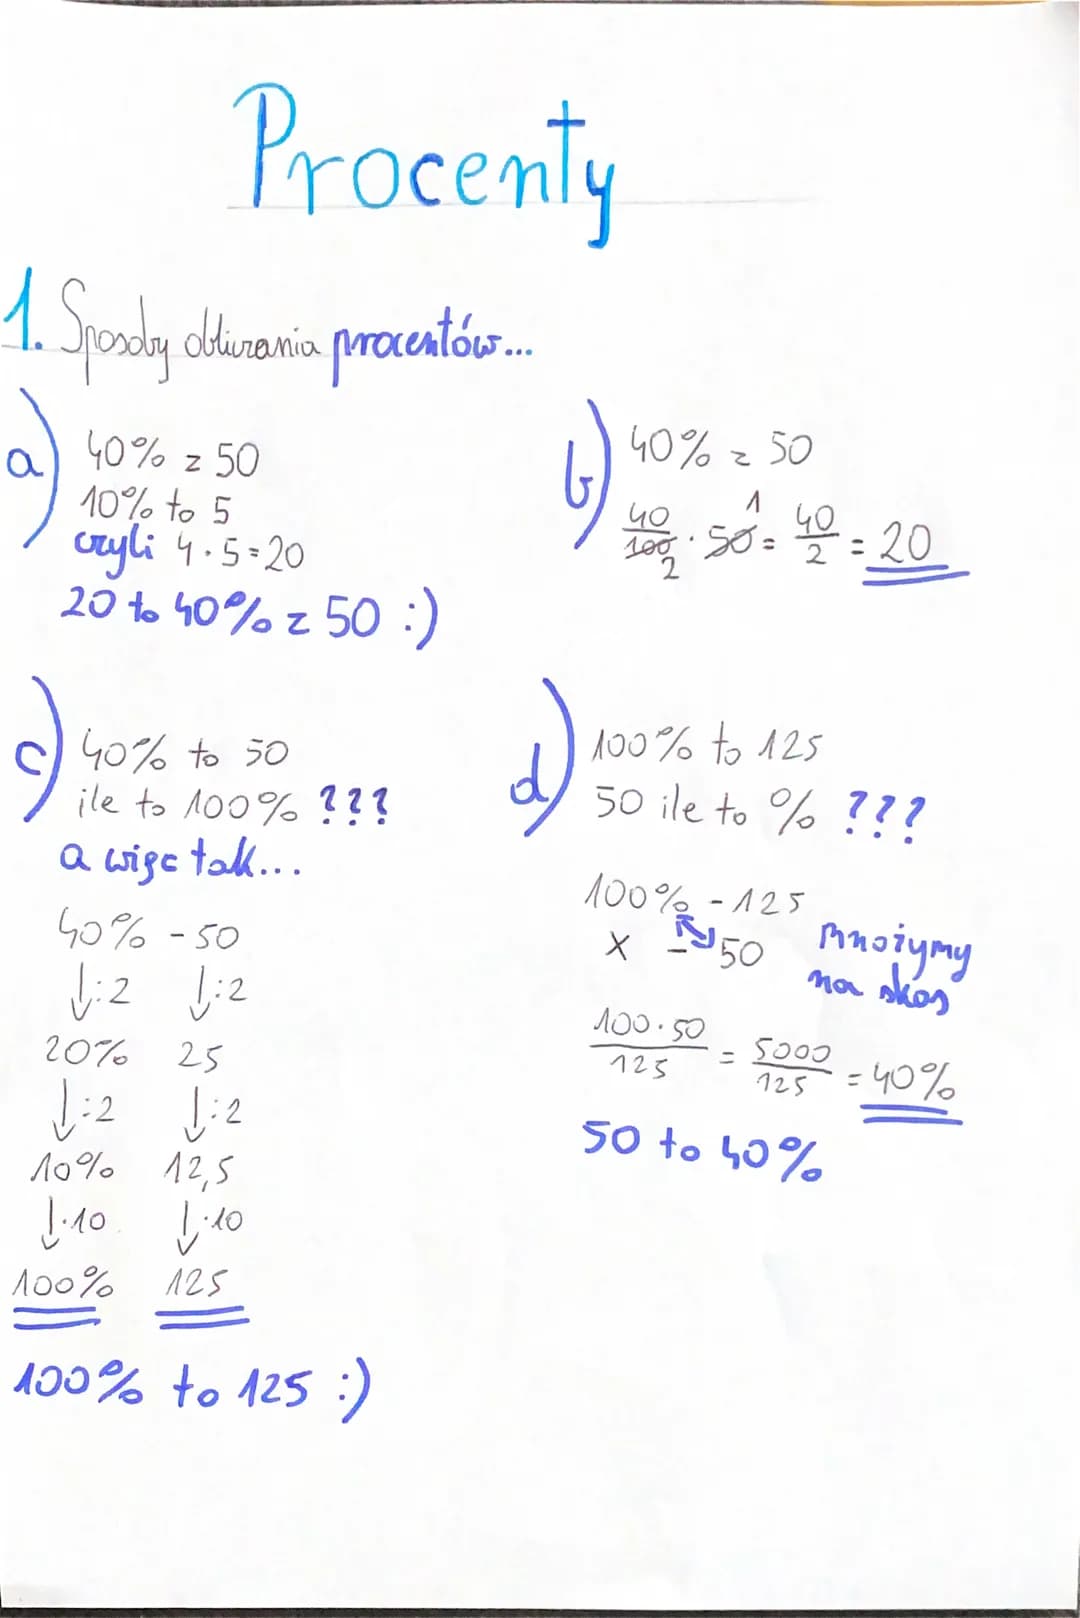 Procenty
1. Sposoby obliczania procentów...
a) 40% z 50
10% to 5
czyli 4 · 5 = 20
20 to 40% z 50 :)
b) 40% z 50
40/100 2 · 50 1 = 40/2 = 20
c) 40% to 50
ile to 100% ???
a więc tak...
40% - 50
↓:2 ↓:2
20% 25
↓:2 ↓:2
10% 12,5
↓·10 ↓·10
100% 125
100% to 125 :)
d) 100% to 125
50 ile to % ???
100% - 125
x - 50
mnożymy
na skos
100·50/125 = 5000/125 = 40%
50 to 40%